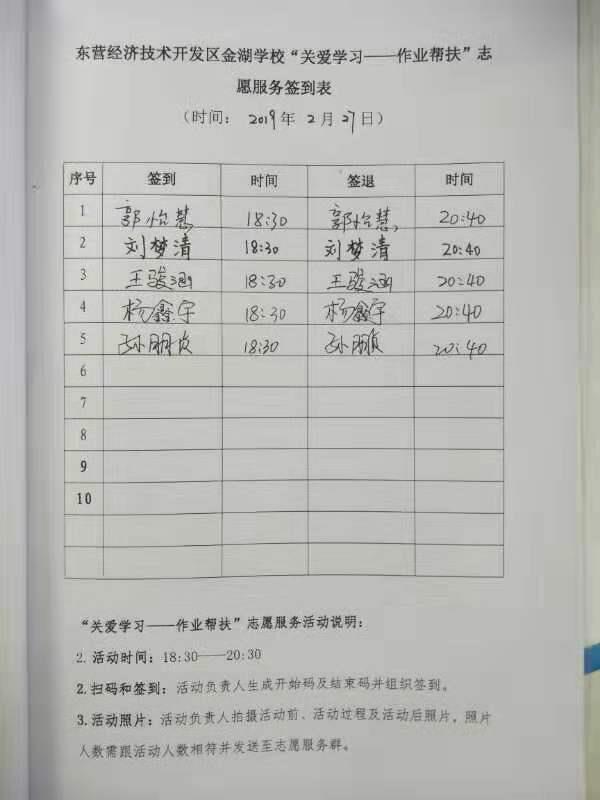 东营经济技术开发区金湖学校“关爱学习——作业帮扶”志
愿服务签到表
（时间： 2019年 2月 27日）
序号 签到 时间 签退 时间
1 郭怡慧 18:30 郭怡慧 20:40
2 刘梦清 18:30 刘梦清 20:40
3 王骏涵 18:30 王骏涵 20:40
4 杨鑫宇 18:30 杨鑫宇 20:40
5 孙朋贞 18:30 孙朋贞 20:40
6
7
8
9
10
“关爱学习——作业帮扶”志愿服务活动说明：
2.活动时间：18:30——20:30
2.扫码和签到：活动负责人生成开始码及结束码并组织签到。
3.活动照片：活动负责人拍摄活动前、活动过程及活动后照片，照片
人数需跟活动人数相符并发送至志愿服务群。